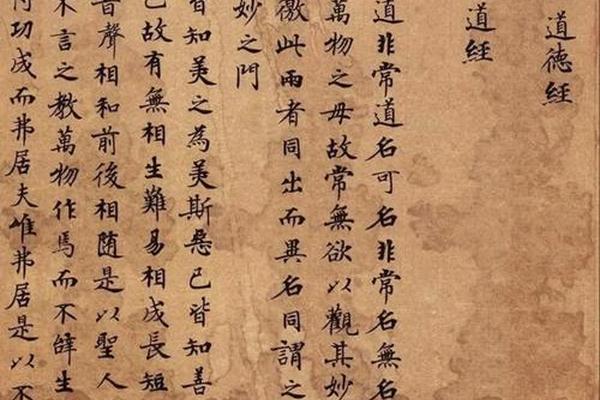 道德經
道經
道非常道名可名非常名無名
萬物之母故常無欲以觀其妙
徼此兩者同出而異名同謂之
妙之門
皆知美之為美斯惡已皆知善
已故有無相生難易相成長短
音聲相和前後相随是以聖人
不言之教萬物作焉而不辝生
功成而弗居夫唯弗居是以不